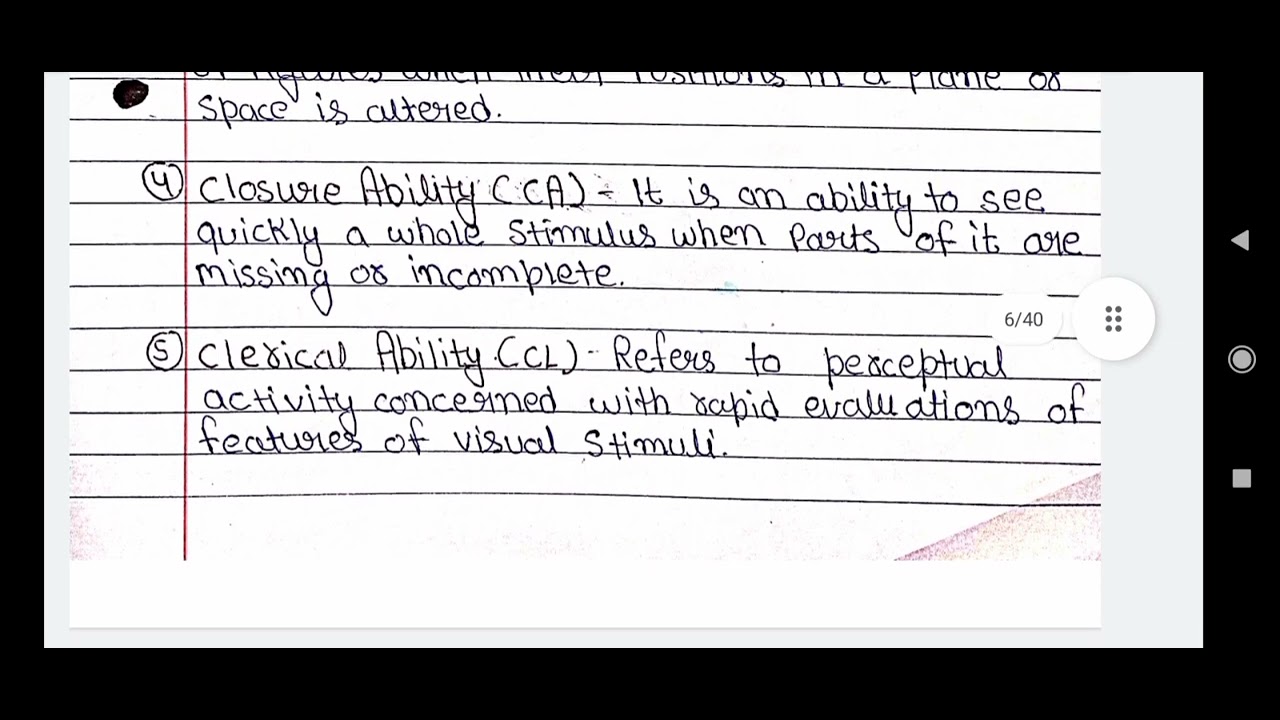 of figures when their positions in a plane or
space is altered.
④ Closure Ability (CCA) - It is an ability to see
quickly a whole stimulus when parts of it are
missing or incomplete.
6/40
⑤ Clerical Ability (CL) - Refers to perceptual
activity concerned with rapid evaluations of
features of visual stimuli.